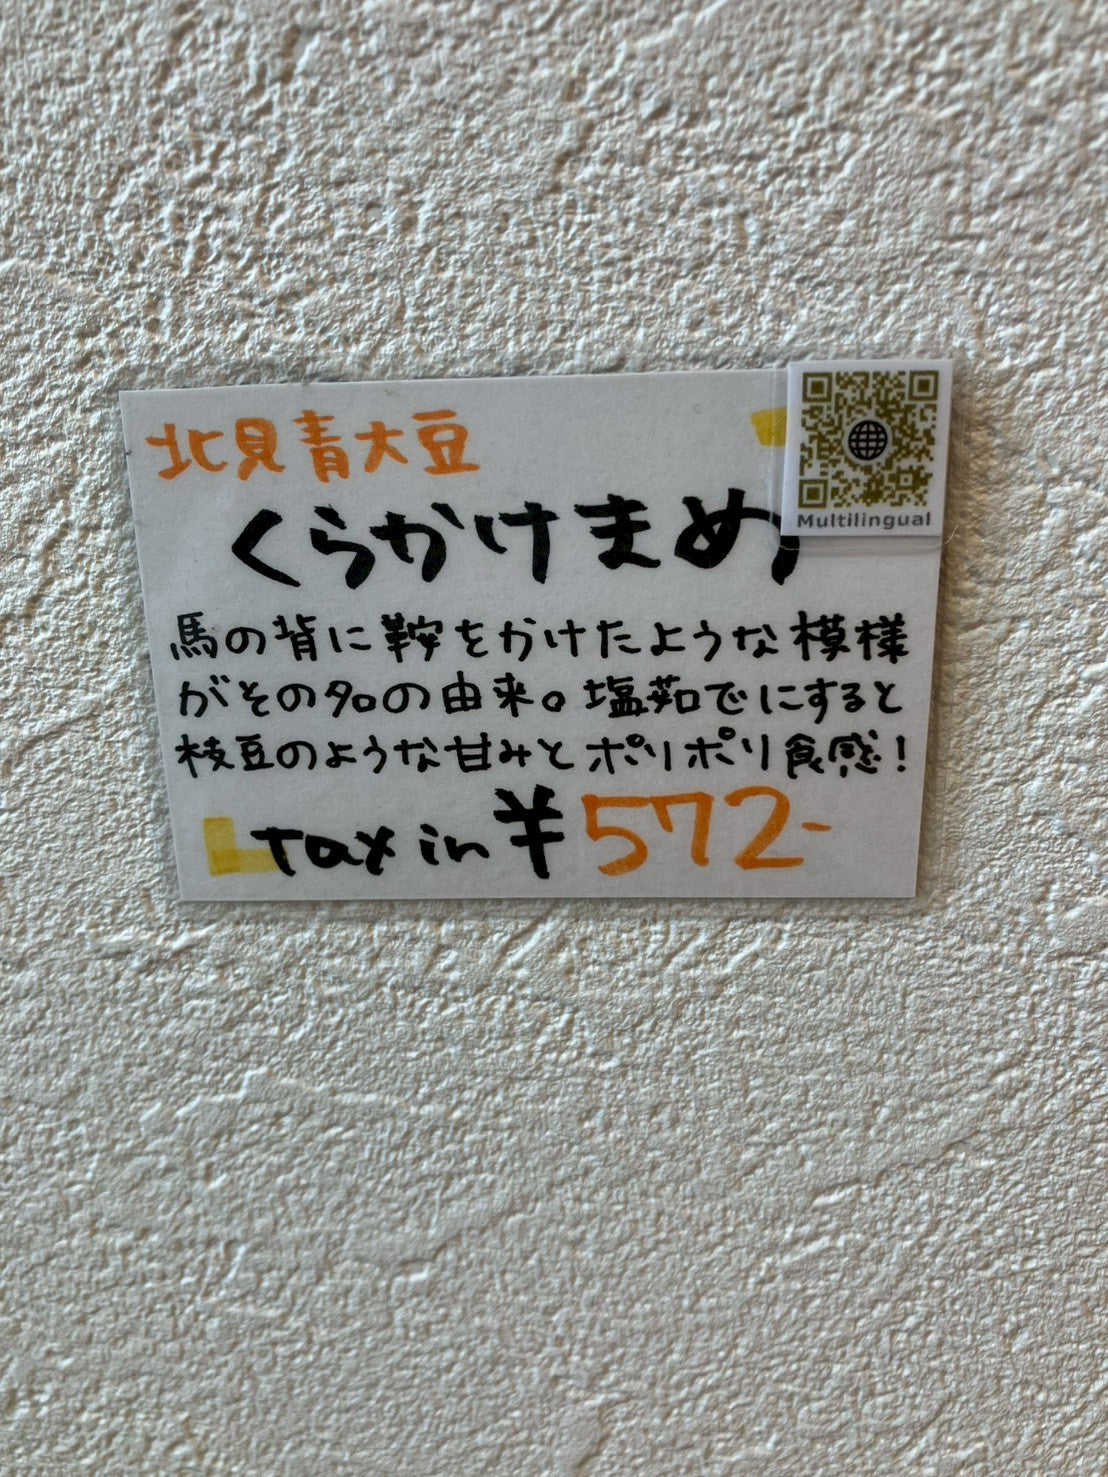 北見青大豆
くらかけまめ
Multilingual
馬の背に鞍をかけたような模様
がその名の由来。塩茹でにすると
枝豆のような甘みとポリポリ食感！
Tax in ¥572-